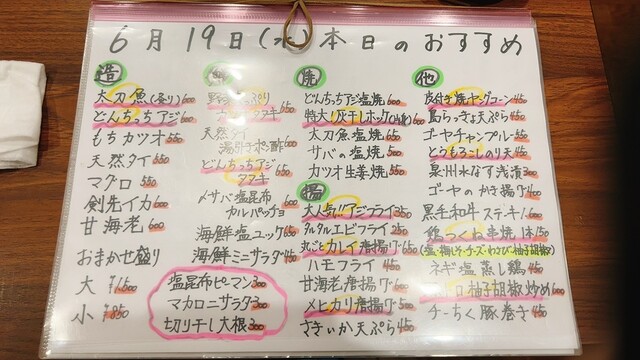 6月19日(水)本日のおすすめ
造
太刀魚(炙り)600
どんちっちアジ600
もちカツオ550
天然タイ650
マグロ550
剣先イカ600
甘海老600
おまかせ盛り
大 ¥1,500
小 ¥850
野菜たっぷり
650
天然タイ
湯引きポン酢600
どんちっちアジ
タタキ650
〆サバ塩昆布
カルパッチョ
海鮮塩ユッケ650
海鮮ミニサラダ450
塩昆布ピーマン300
マカロニサラダ300
切り干し大根300
焼
どんちっちアジ塩焼600
特大!灰干しホッケ
太刀魚塩焼650
サバの塩焼500
カツオ生姜焼550
揚
大人気!!アジフライ350
タルタルエビフライ250
丸ごとカレイ唐揚げ650
ハモフライ450
甘海老唐揚げ500
メヒカリ唐揚げ500
さきいか天ぷら400
他
皮付き焼ヤングコーン450
島らっきょ天ぷら450
ゴーヤチャンプルー550
とうもろこしのり天450
泉州水なす浅漬300
ゴーヤのかき揚げ400
黒毛和牛ステーキ1,600
鶏つくね串焼1本150
(塩・梅しそ・チーズ・わさび・柚子胡椒)
ネギ塩蒸し鶏450
柚子胡椒炒め600
チーちく豚巻き450